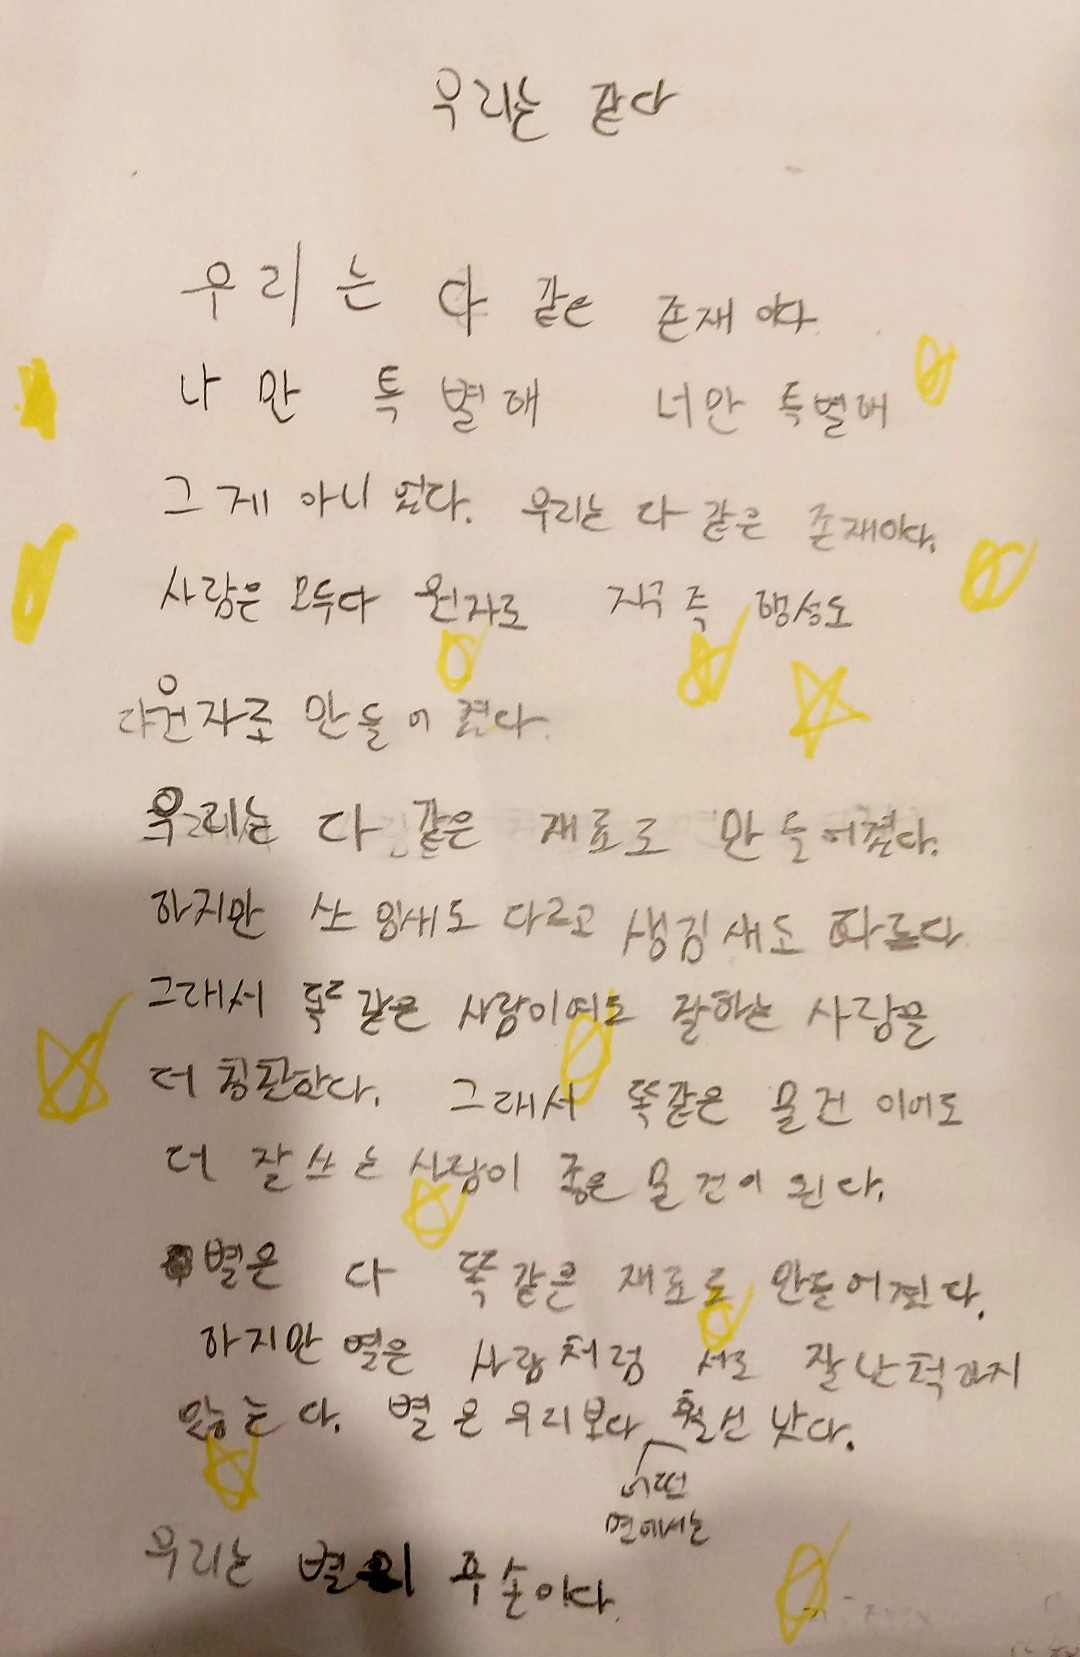 우리는 같다
우리는 다 같은 존재이다.
나만 특별해 너만 특별해
그게 아니였다. 우리는 다 같은 존재이다.
사람은 모두다 원자로 지구 즉 행성도
다원자로 만들어 졌다.
우리는 다 같은 재료로 만들어졌다.
하지만 쓰임새도 다르고 생김새도 다르다
그래서 똑같은 사람이여도 잘하는 사람을
더 칭찬한다. 그래서 똑같은 물건 이어도
더 잘쓰는 사람이 좋은 물건이 된다.
별은 다 똑같은 재료로 만들어졌다.
하지만 별은 사람처럼 서로 잘난척하지
않는다. 별은 우리보다 어떤 면에서는 훨신 낫다.
우리는 별의 후손이다.